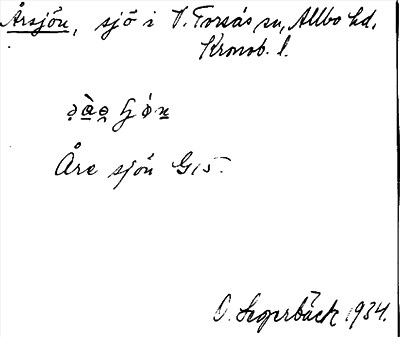 Årsjön, sjö i V. Torsås sn, Allbo hd,
Kronob. l.
Åre sjön G15.
O. Segerbäck 1934.